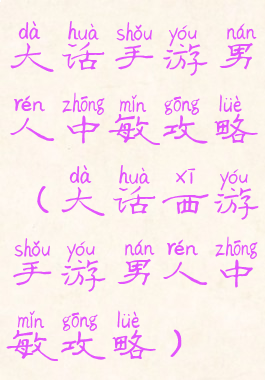 dà huà shǒu yóu nán
大话手游男
rén zhōng mǐn gōng lüè
人中敏攻略
dà huà xī yóu
（大话西游
shǒu yóu nán rén zhōng
手游男人中
mǐn gōng lüè
敏攻略）